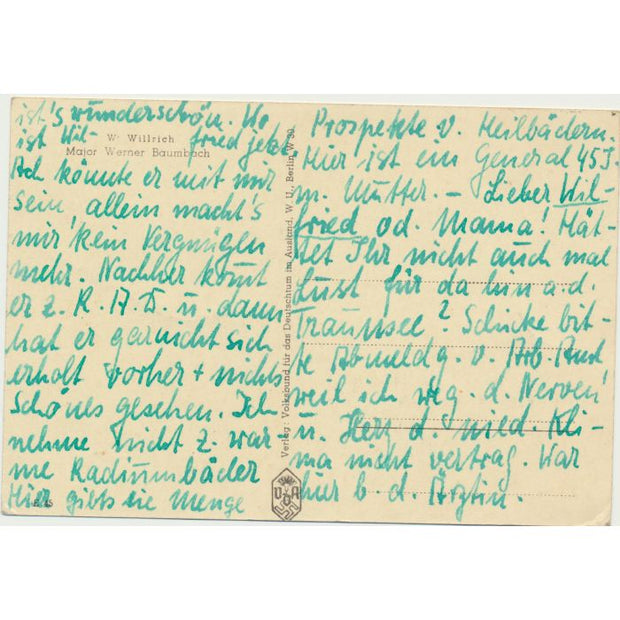 ist's wunderschön. Wo
ist Wil- fried jetzt
W. Willrich
Major Werner Baumbach
Ach könnte er mit mir
sein, allein macht's
mir kein Vergnügen
mehr. Nachher kommt
er z. R. A. D. u. dann
hat er garnicht sich
erholt vorher + nichts
Schönes gesehen. Ich
nehme nicht z. war-
me Radiumbäder
Hier gibts die Menge
Verlag: Volksbund für das Deutschtum im Ausland, W U., Berlin W 30.
VDA
Prospekte v. Heilbädern.
Hier ist ein General 45 J.
m. Mutter. – Lieber Wil-
fried od. Mama! Hät-
tet Ihr nicht auch mal
Lust für da hin a. d.
Traunsee? Schicke bit-
te Abmeldg. v. Arb. Amt
weil ich weg. d. Nerven
u. Herz d. nied. Kli-
ma nicht vertrag. War
hier b. d. Ärztin.